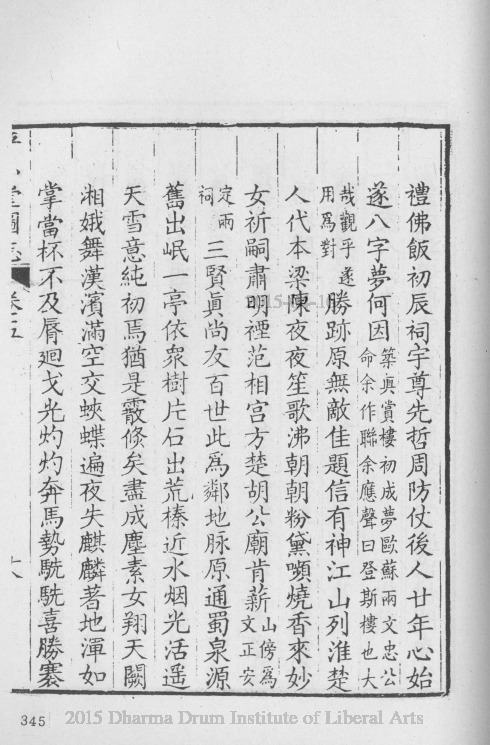 禮佛飯初辰祠宇尊先哲周防仗後人廿年心始
遂八字夢何因築真賞樓初成夢歐蘇兩文忠公命余作聯余應聲曰登斯樓也大
哉觀乎遂用爲對勝跡原無敵佳題信有神江山列淮楚
人代本梁陳夜夜笙歌沸朝朝粉黛嚬燒香來妙
女祈嗣肅明禋范相宫方楚胡公廟肯薪山傍爲文正安
定兩祠三賢眞尚友百世此爲鄰地脉原通蜀泉源
舊出岷一亭依衆樹片石出荒榛近水烟光活遥
天雪意純初焉猶是霰倏矣盡成塵素女翔天闕
湘娥舞漢濱滿空交蛺蝶遍夜失麒麟著地渾如
掌當杯不及脣廻戈光灼灼奔馬勢駪駪喜勝褰
卷五
345
2015 Dharma Drum Institute of Liberal Arts